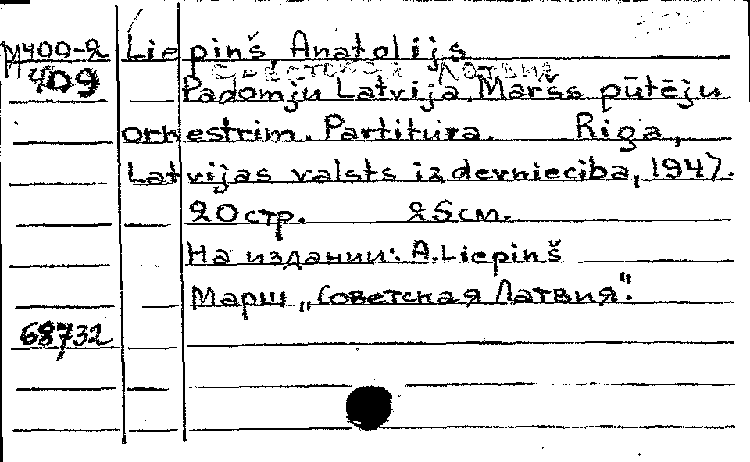 М400-2 Liepinš, Anatolijs
409 Советская Латвия
Padomju Latvija. Maršs pūtēju
orkestrim. Partitūra. Riga,
Latvijas valsts izdevnieciba, 1947.
20 стр. 25 см.
На издании: A. Liepinš
Марш „Советская Латвия".
68732